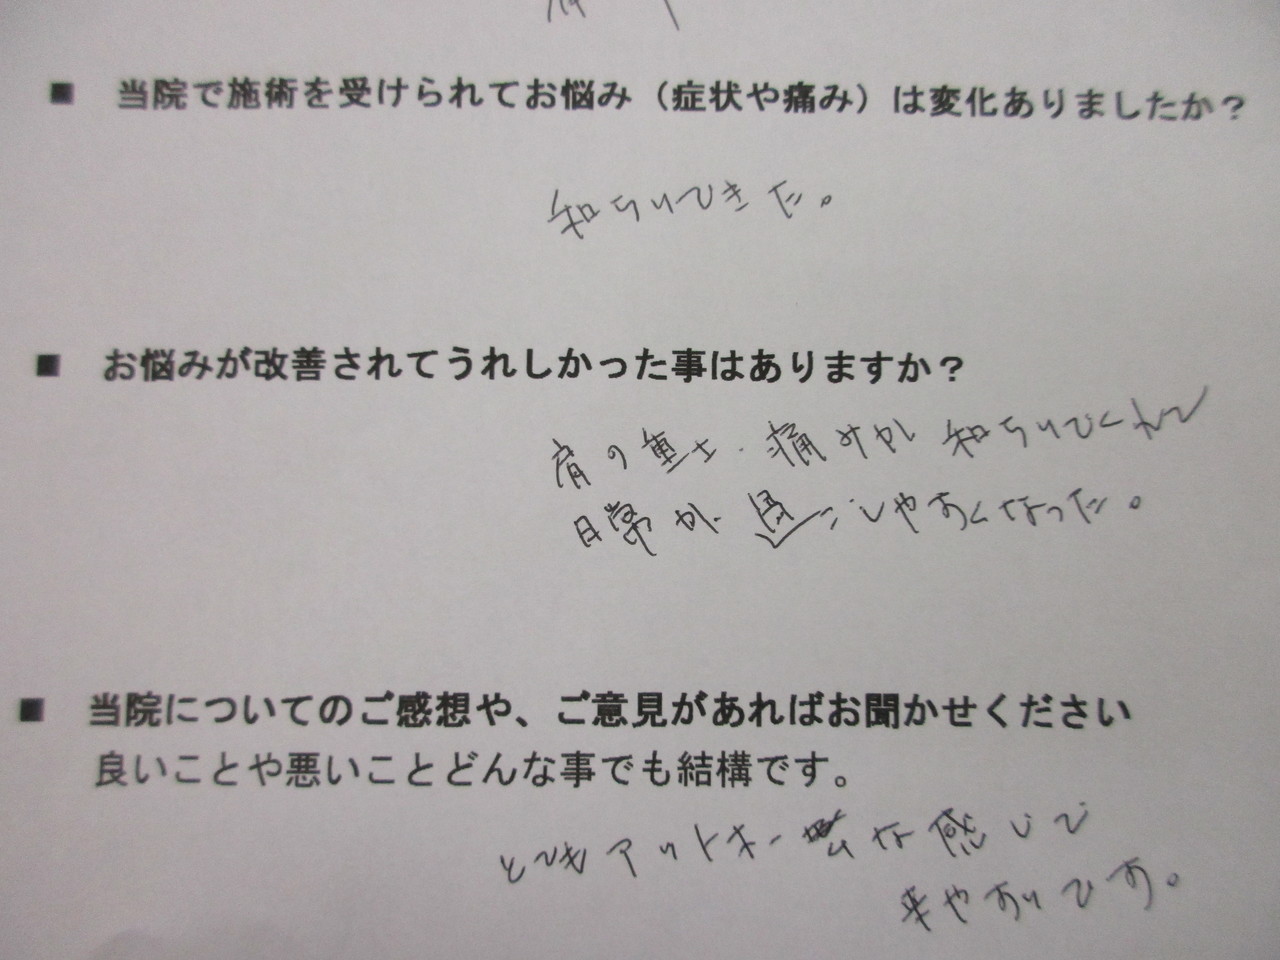 ■ 当院で施術を受けられてお悩み（症状や痛み）は変化ありましたか？
和らいできた。
■ お悩みが改善されてうれしかった事はありますか？
肩の重さ・痛みが和らいでくれて
日常が過ごしやすくなった。
■ 当院についてのご感想や、ご意見があればお聞かせください
良いことや悪いことどんな事でも結構です。
とてもアットホームな感じで
来やすいです。